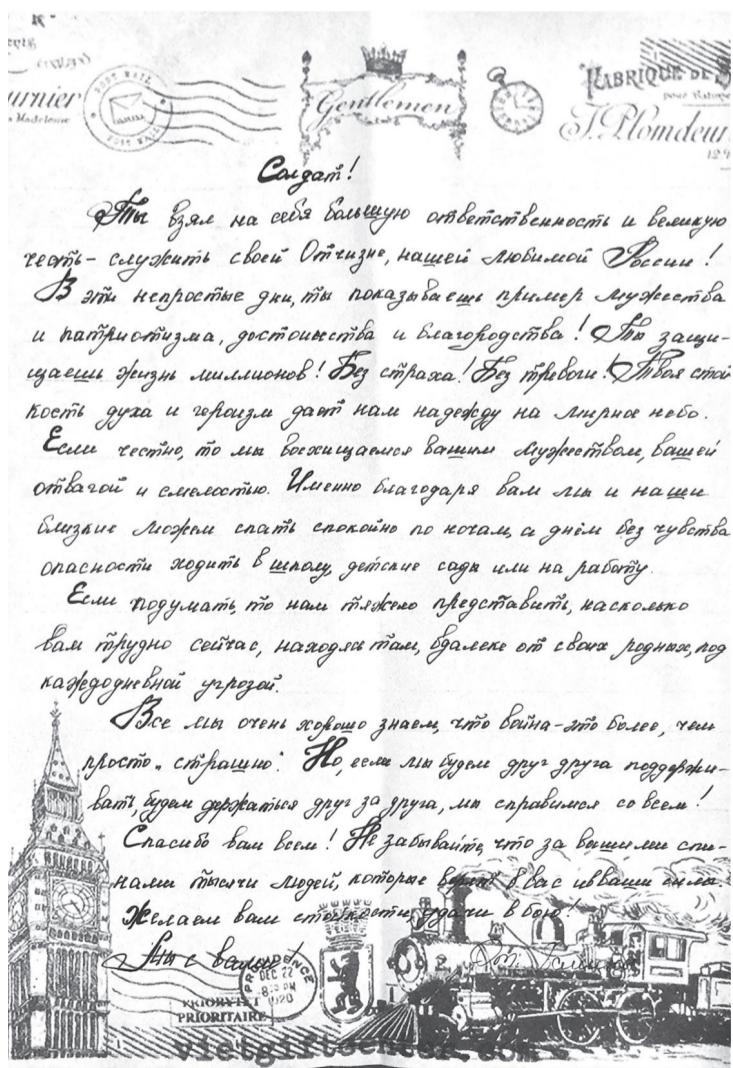 urnier
Madeleine
POST MAIL
Gentlemen
FABRIQUE DE
pour
J. Plomdeur
Солдат!
Ты взял на себя большую ответственность и великую
честь – служить своей Отчизне, нашей любимой России!
В эти непростые дни, ты показываешь пример мужества
и патриотизма, достоинства и благородства! Ты защи-
щаешь жизнь миллионов! Без страха! Без тревоги! Твоя стой
кость духа и героизм дает нам надежду на мирное небо.
Если честно, то мы восхищаемся вашим мужеством, вашей
отвагой и смелостью. Именно благодаря вам мы и наши
близкие можем спать спокойно по ночам, а днём без чувства
опасности ходить в школу, детские сады или на работу.
Если подумать, то нам тяжело представить, насколько
вам трудно сейчас, находясь там, вдалеке от своих родных, под
каждодневной угрозой.
Все мы очень хорошо знаем, что война – это более, чем
просто „страшно". Но, если мы будем друг друга поддержи-
вать, будем держаться друг за друга, мы справимся со всем!
Спасибо вам всем! Не забывайте, что за вашими спи-
нами тысячи людей, которые верят в вас и в ваши силы.
Желаем вам стойкости, удачи в бою!
Мы с вами!
DEC 22
1920
PRIORITAIRE
vietgiftcenter.com